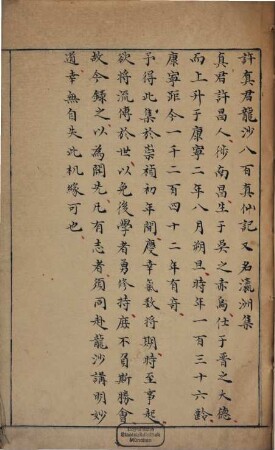 許真君龍沙八百真仙記 又名瀛洲集
真君許昌人徙南昌生于吳之赤烏仕于晋之大德
而上升于康寧二年八月朔旦時年一百三十六齡
康寧距今一千二百四十二年有竒
予得此集於崇禎初年間慶幸氣数将期時至事起
欲将流傳於世以免後學者勇修持庶不負斯勝會
故令錄之以為開先凡有志者須同赴龍沙講明妙
道幸無自失此机緣可也
Bayerische
Staatsbibliothek
München